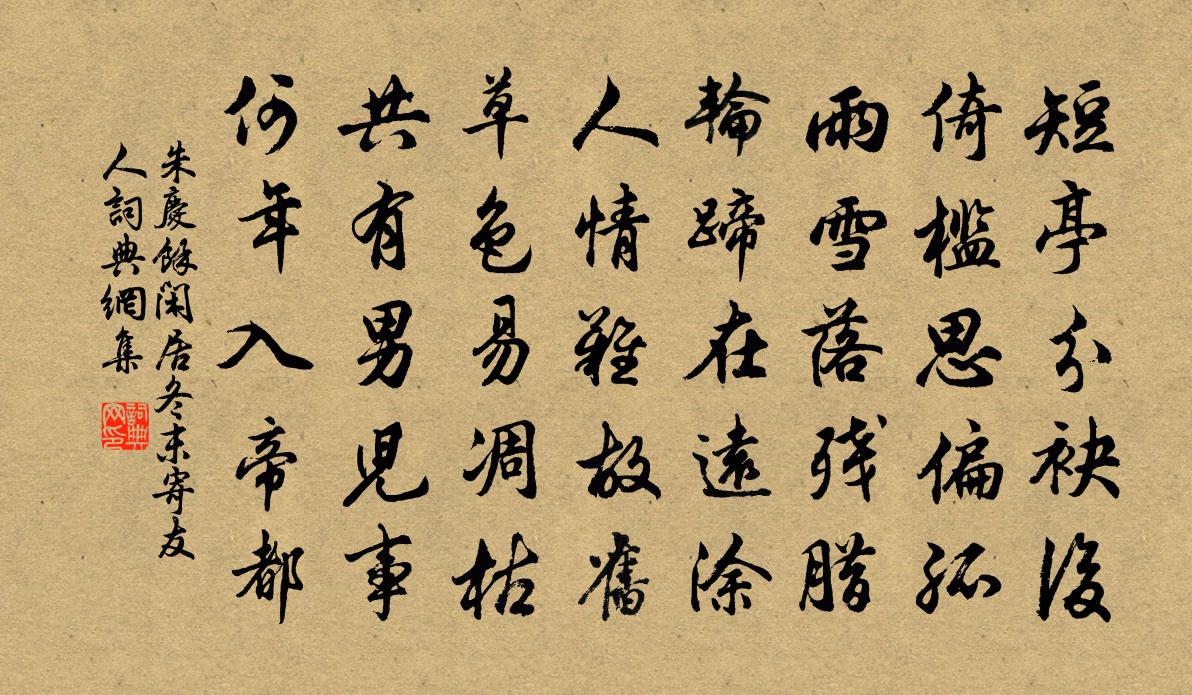 短亭分袂後
倚檻思偏孤
雨雪落殘腊
輪蹄在遠涂
人情難故舊
草色易凋枯
共有男兒事
何年入帝都
朱慶餘閑居冬末寄友
人詞典網集
詞典网印